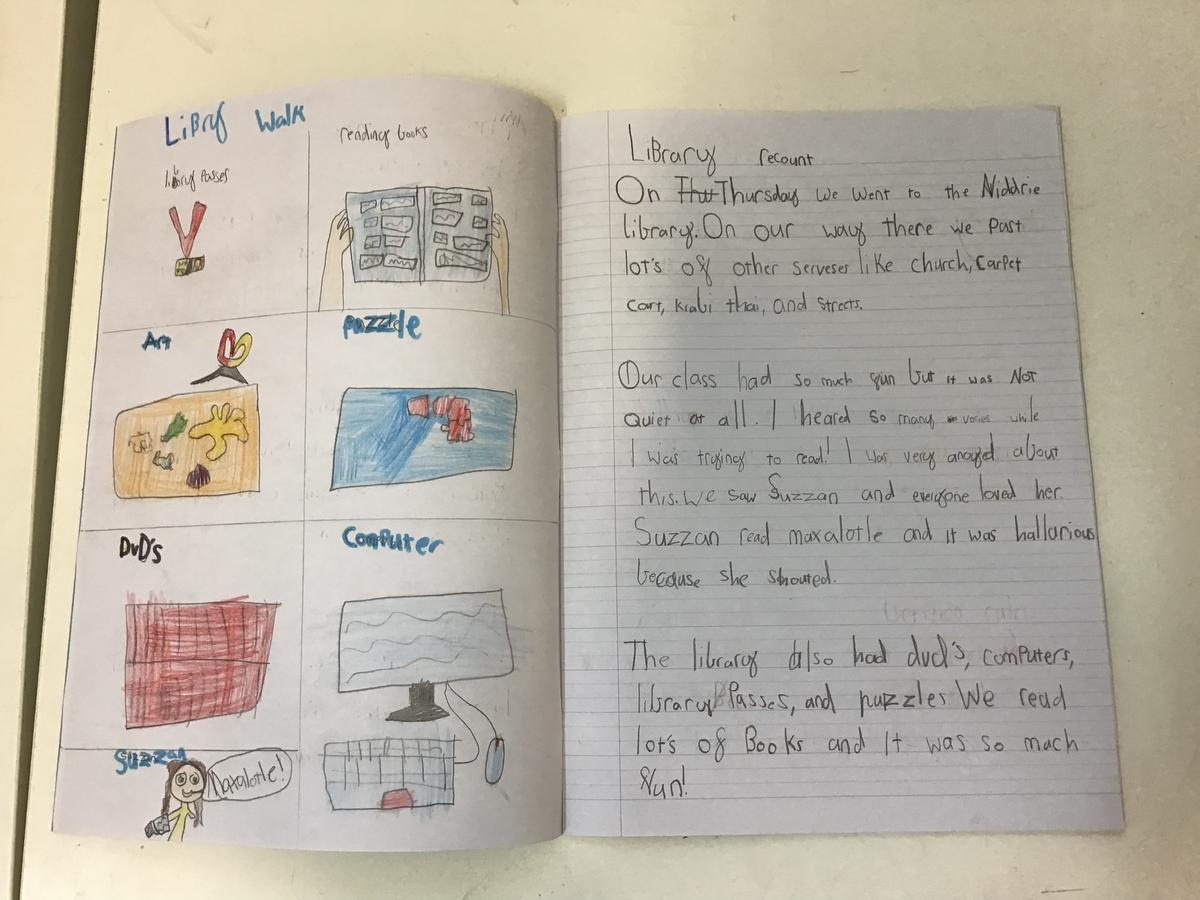 LiBry Walk
library Passes
reading books
Art
puzzle
DvD's
Computer
Suzzan
Maxalotle!
LiBrary recount
On Thu Thursday we went to the Niddrie
library. On our way there we past
lot's of other serveses like church, Carpet
Cart, krabi thai, and streets.
Our class had so much fun but it was Not
Quiet at all. I heard so many vories while
I was trying to read! I was very anoyed about
this. We saw Suzzan and everyone loved her.
Suzzan read maxalotle and it was hallarious
because she shouted.
The library also had dvd's, computers,
library Passes, and puzzles We read
lot's of Books and It was so mach
fun!